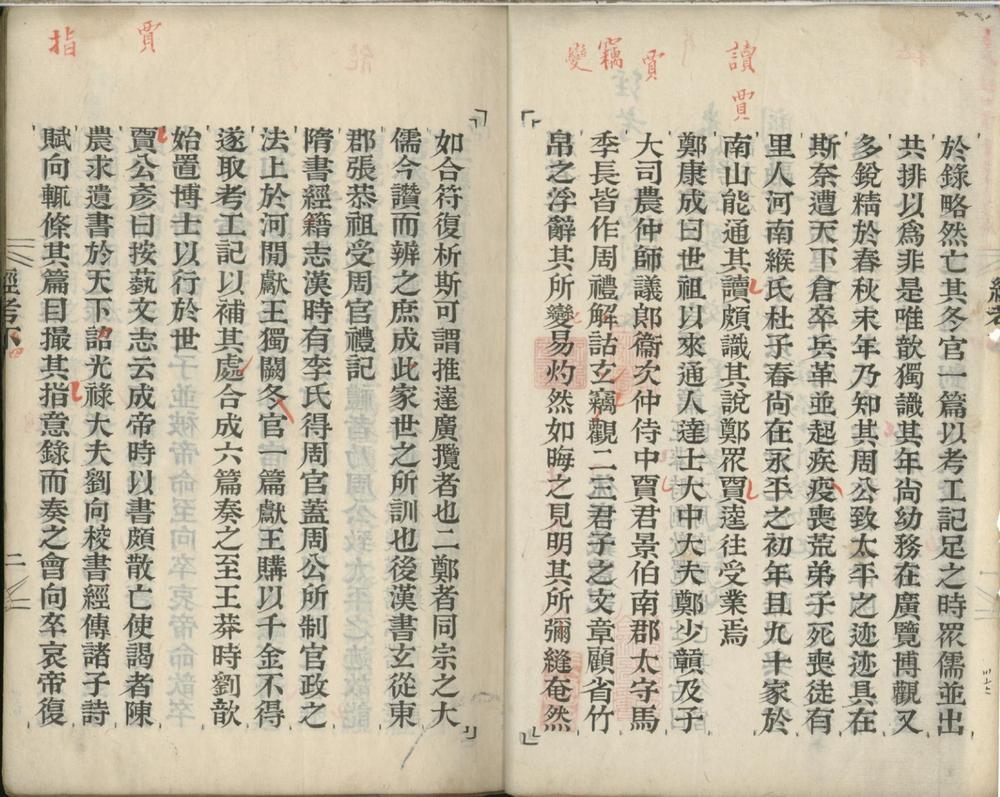 於錄略然亡其冬官一篇以考工記足之時眾儒並出
共排以爲非是唯歆獨識其年尚幼務在廣覽博觀又
多銳精於春秋末年乃知其周公致太平之迹迹具在
斯奈遭天下倉卒兵革並起疾疫喪荒弟子死喪徒有
里人河南緱氏杜子春尚在永平之初年且九十家於
南山能通其讀頗識其說鄭眾賈逵往受業焉
鄭康成曰世祖以來通人達士大中大夫鄭少贛及子
大司農仲師議郎衞次仲侍中賈君景伯南郡太守馬
季長皆作周禮解詁玄竊觀二三君子之文章顧省竹
帛之浮辭其所變易灼然如晦之見明其所彌縫奄然
讀
賈
賈
竊
變
如合符復析斯可謂推達廣攬者也二鄭者同宗之大
儒今讚而辨之庶成此家世之所訓也後漢書玄從東
郡張恭祖受周官禮記
隋書經籍志漢時有李氏得周官蓋周公所制官政之
法上於河閒獻王獨闕冬官一篇獻王購以千金不得
遂取考工記以補其處合成六篇奏之至王莽時劉歆
始置博士以行於世
賈公彥曰按藝文志云成帝時以書頗散亡使謁者陳
農求遺書於天下詔光祿大夫劉向校書經傳諸子詩
賦向輒條其篇目撮其指意錄而奏之會向卒哀帝復
賈
指
經考下
二